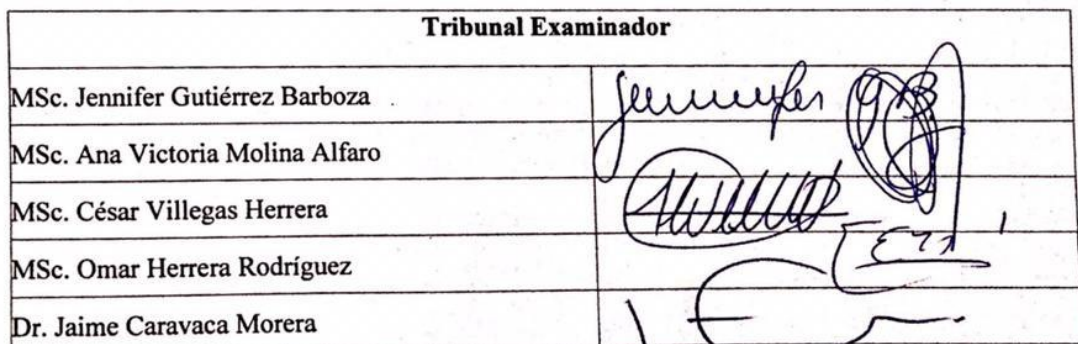 Tribunal Examinador
MSc. Jennifer Gutiérrez Barboza
Jennifer GB
MSc. Ana Victoria Molina Alfaro
MSc. César Villegas Herrera
MSc. Omar Herrera Rodríguez
Dr. Jaime Caravaca Morera